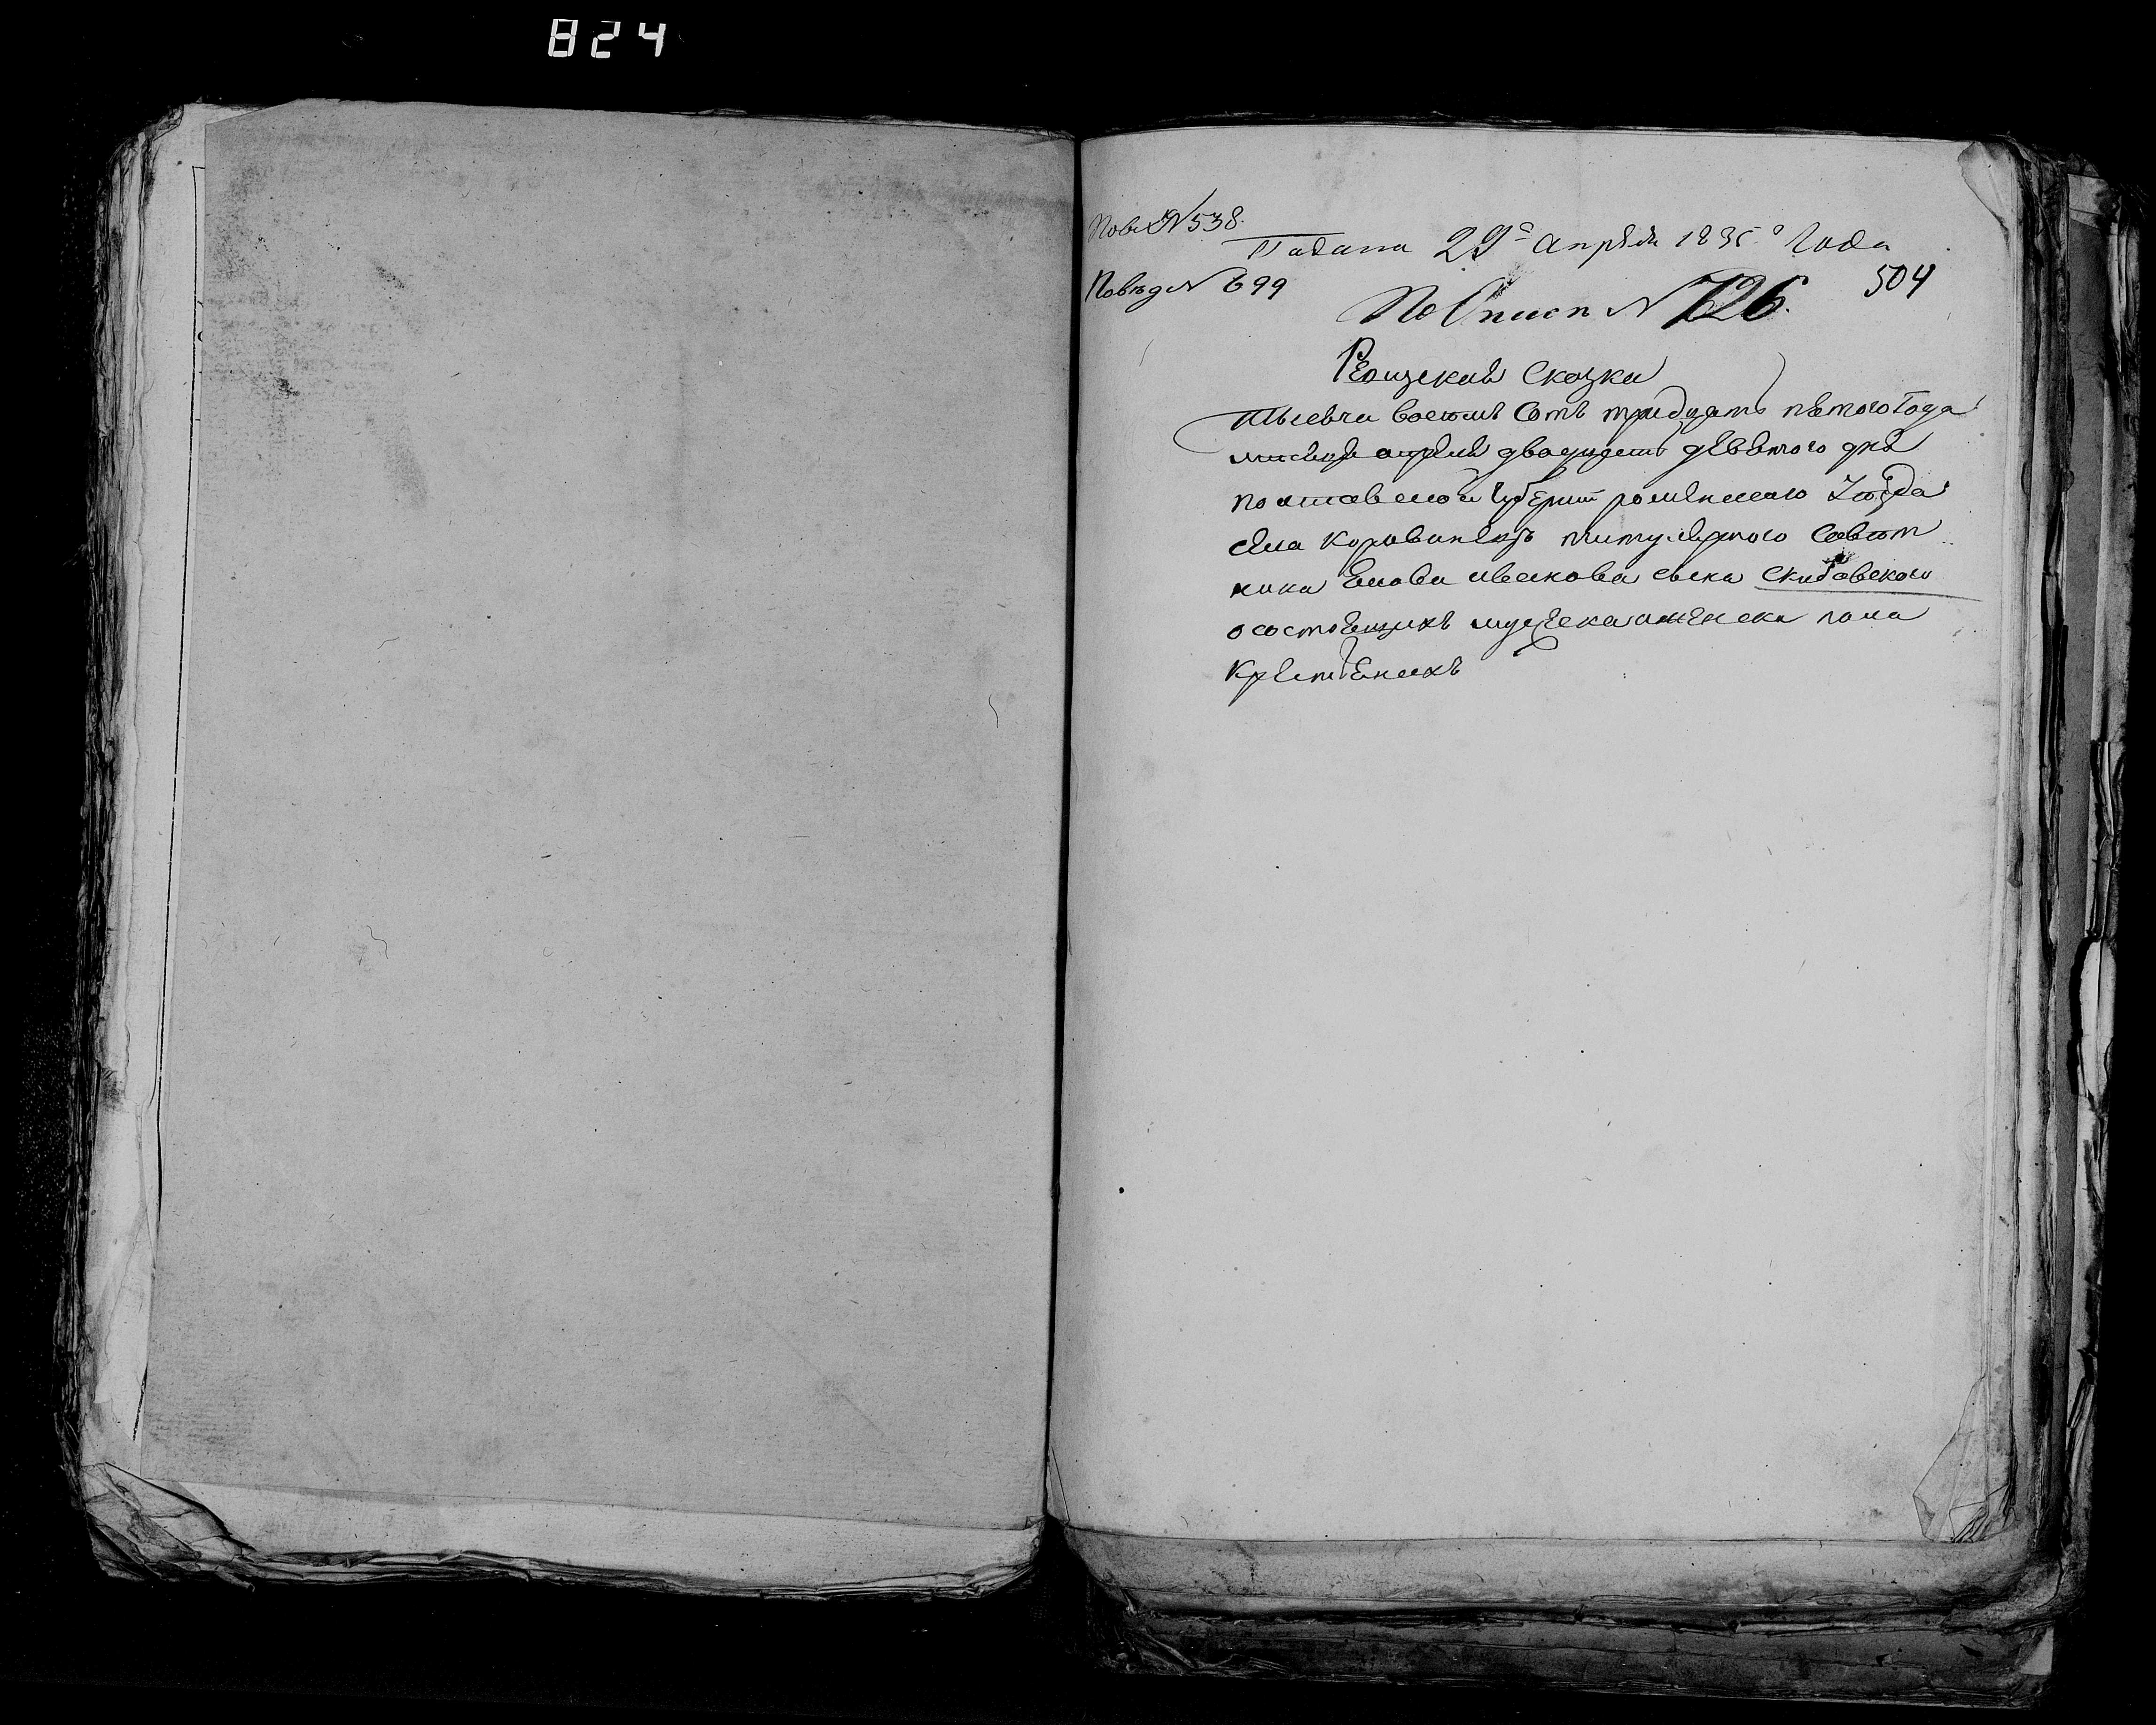 824
Пов № 538.
Подана 29го апреля 1835го Года
Повед № 699 504
По Описи № 726.
Ревизская Сказка
тысеча восемь Сотъ тридцать пѣтого Года
месяца апреля двадцать девѣтого дня
полтавской Губернии роменского уезда
села Коровинецъ титулярного Совет
ника сына Скибовского
о состоещихъ мужеска и женска пола
Крестьенехъ